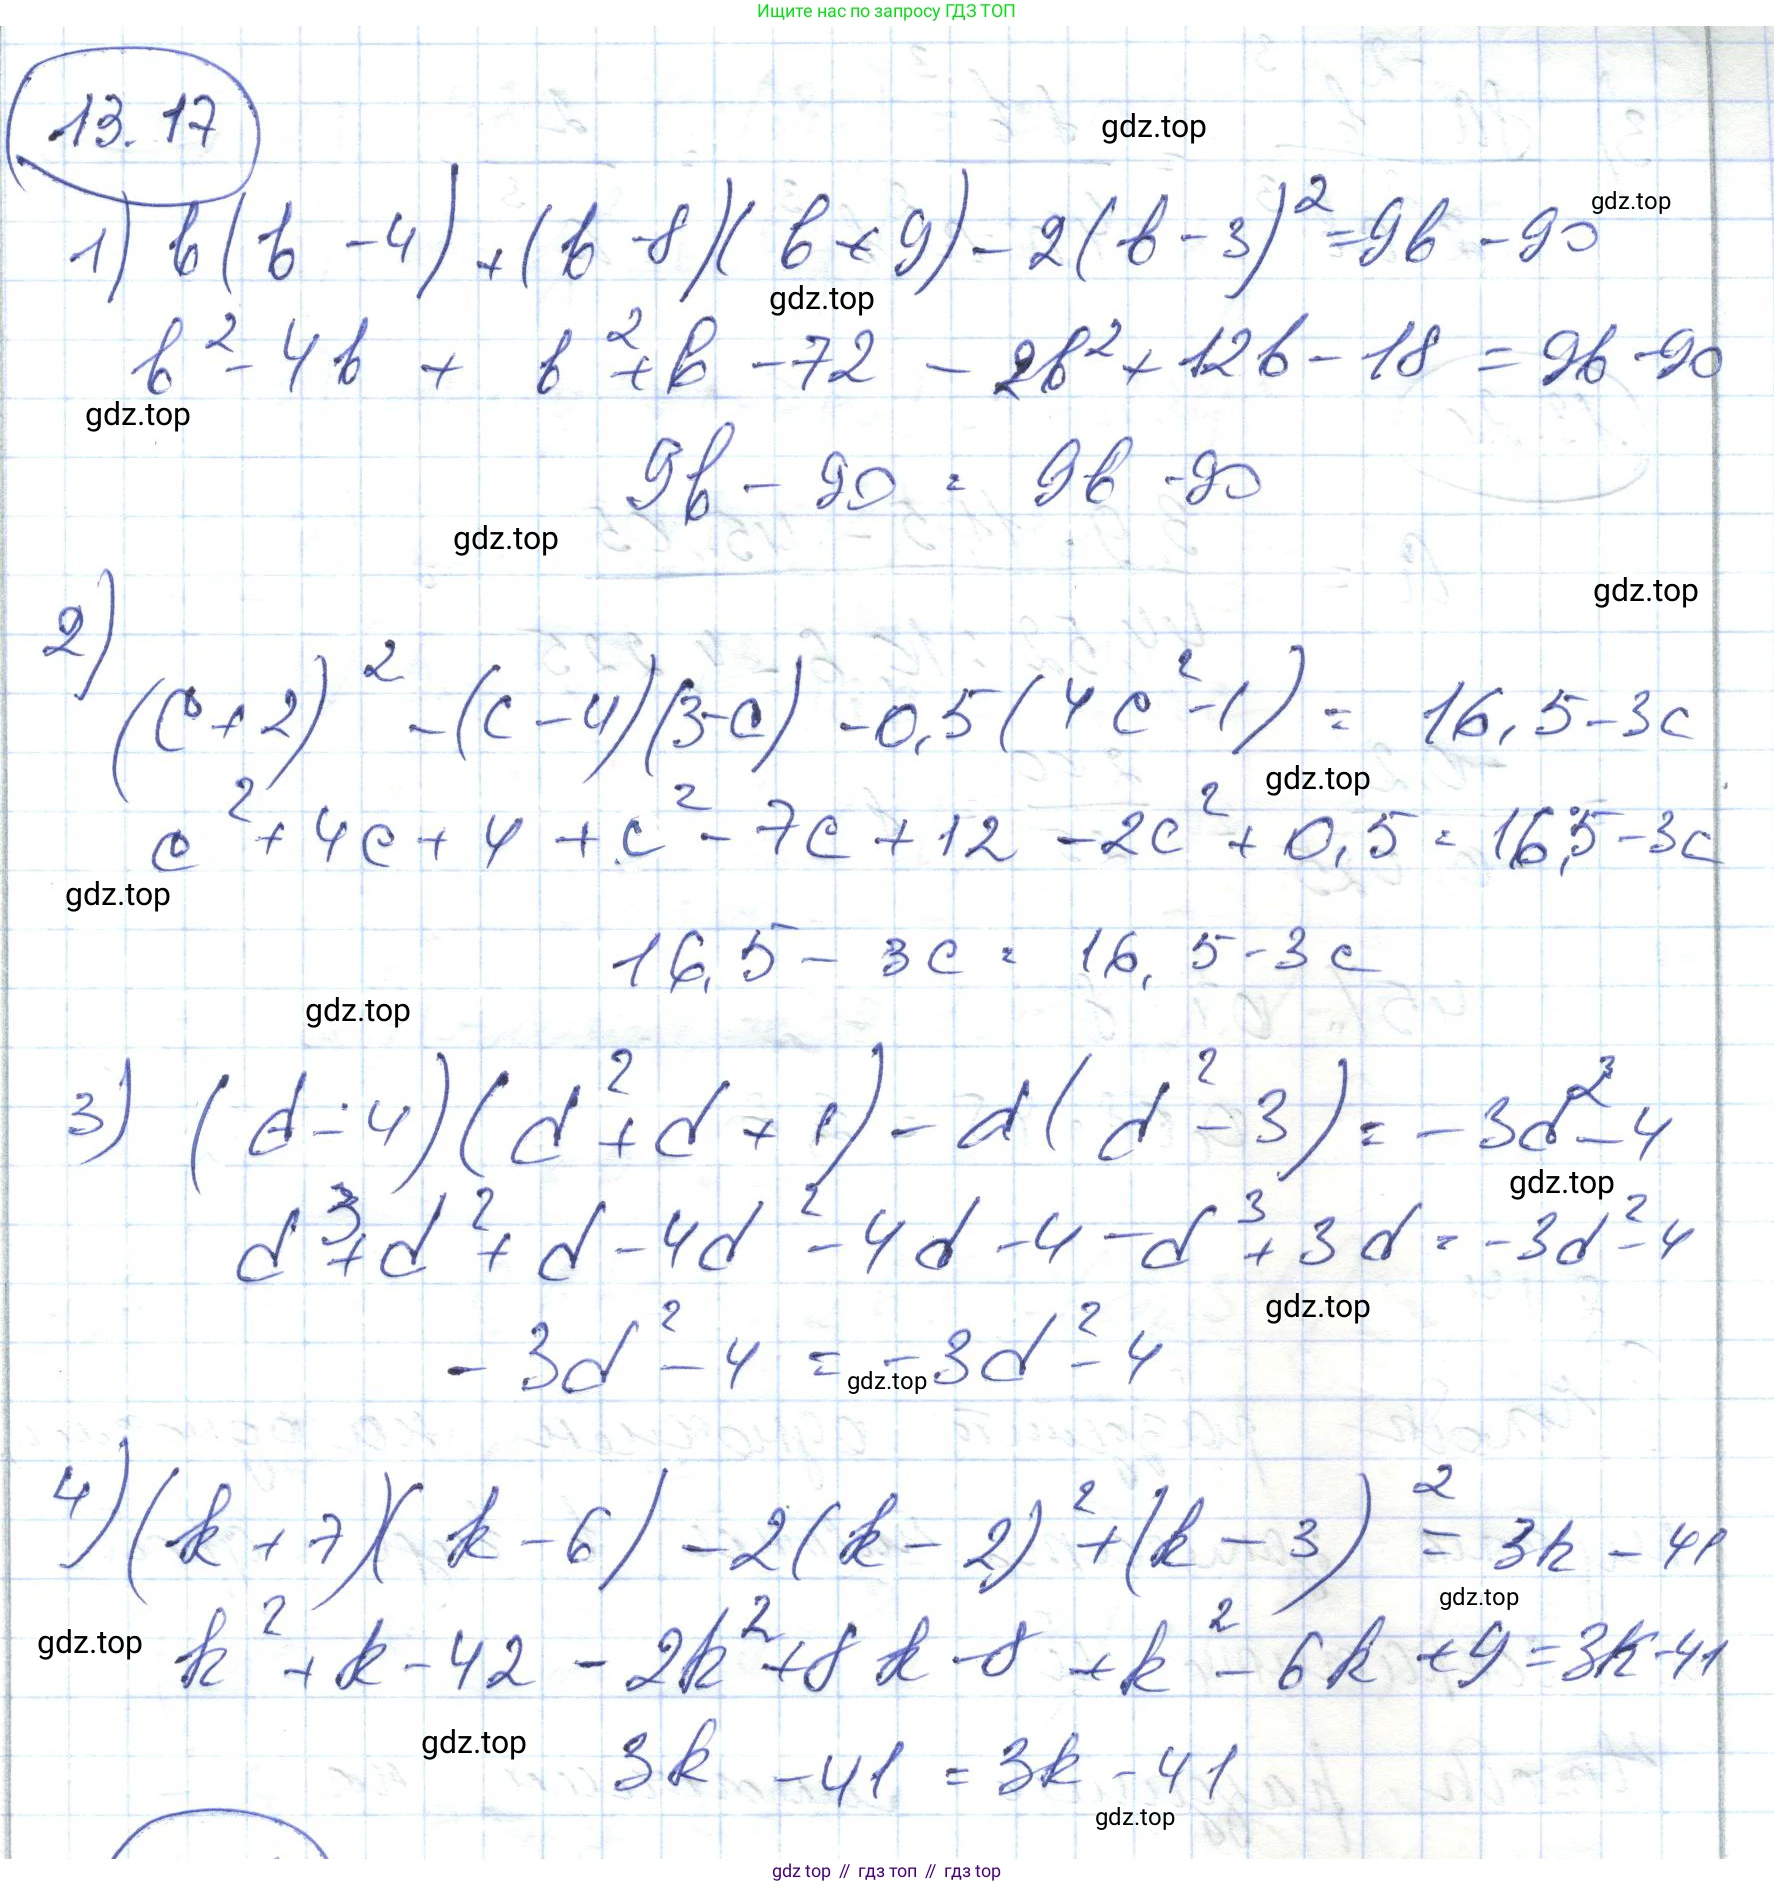 Ищите нас по запросу ГДЗ ТОП
13.17
gdz.top
1) b(b-4)+(b-8)(b+9)-2(b-3)²=9b-90
gdz.top
gdz.top
b²-4b+b²+b-72-2b²+12b-18=9b-90
gdz.top
9b-90=9b-90
gdz.top
gdz.top
2)
(c+2)²-(c-4)(3-c)-0,5(4c²-1)=16,5-3c
gdz.top
c²+4c+4+c²-7c+12-2c²+0,5=16,5-3c
gdz.top
16,5-3c=16,5-3c
gdz.top
3) (d-4)(d²+d+1)-d(d²-3)=-3d²-4
gdz.top
d³+d²+d-4d²-4d-4-d³+3d=-3d²-4
gdz.top
-3d²-4=-3d²-4
gdz.top
4) (k+7)(k-6)-2(k-2)²+(k-3)²=3k-41
gdz.top
gdz.top
k²+k-42-2k²+8k-8+k²-6k+9=3k-41
gdz.top
3k-41=3k-41
gdz.top
gdz top // гдз топ // гдз top